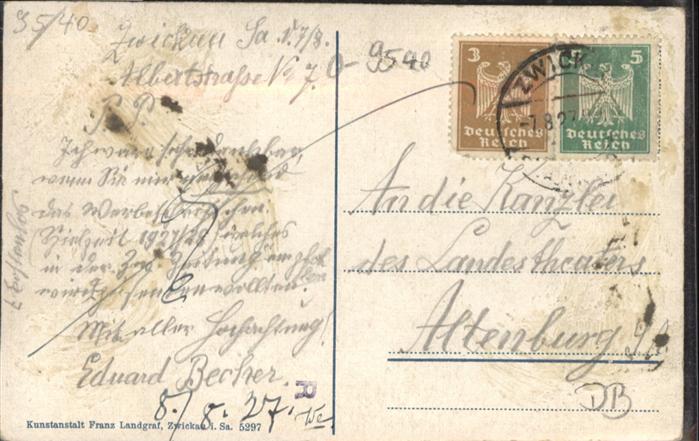 35/40
Zwickau Sa. d. 7/8.
Albertstraße No 7.
9540
P. P.
3
5
Deutsches
Reich
Deutsches
Reich
ZWICK
-7.8.27
Ich wäre sehr dankbar,
wenn Sie mir
das
Spielzeit 1927/28 welches
in der Zeitung
wird, senden wollten.
Mit aller Hochachtung!
Eduard Becher.
8./8. 27.
R
Kunstanstalt Franz Landgraf, Zwickau i. Sa. 5297
An die Kanzlei
des Landestheaters
Altenburg
DB